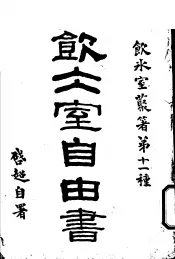 飲冰室叢著第十一種
飲仌室自由書
啓超自署